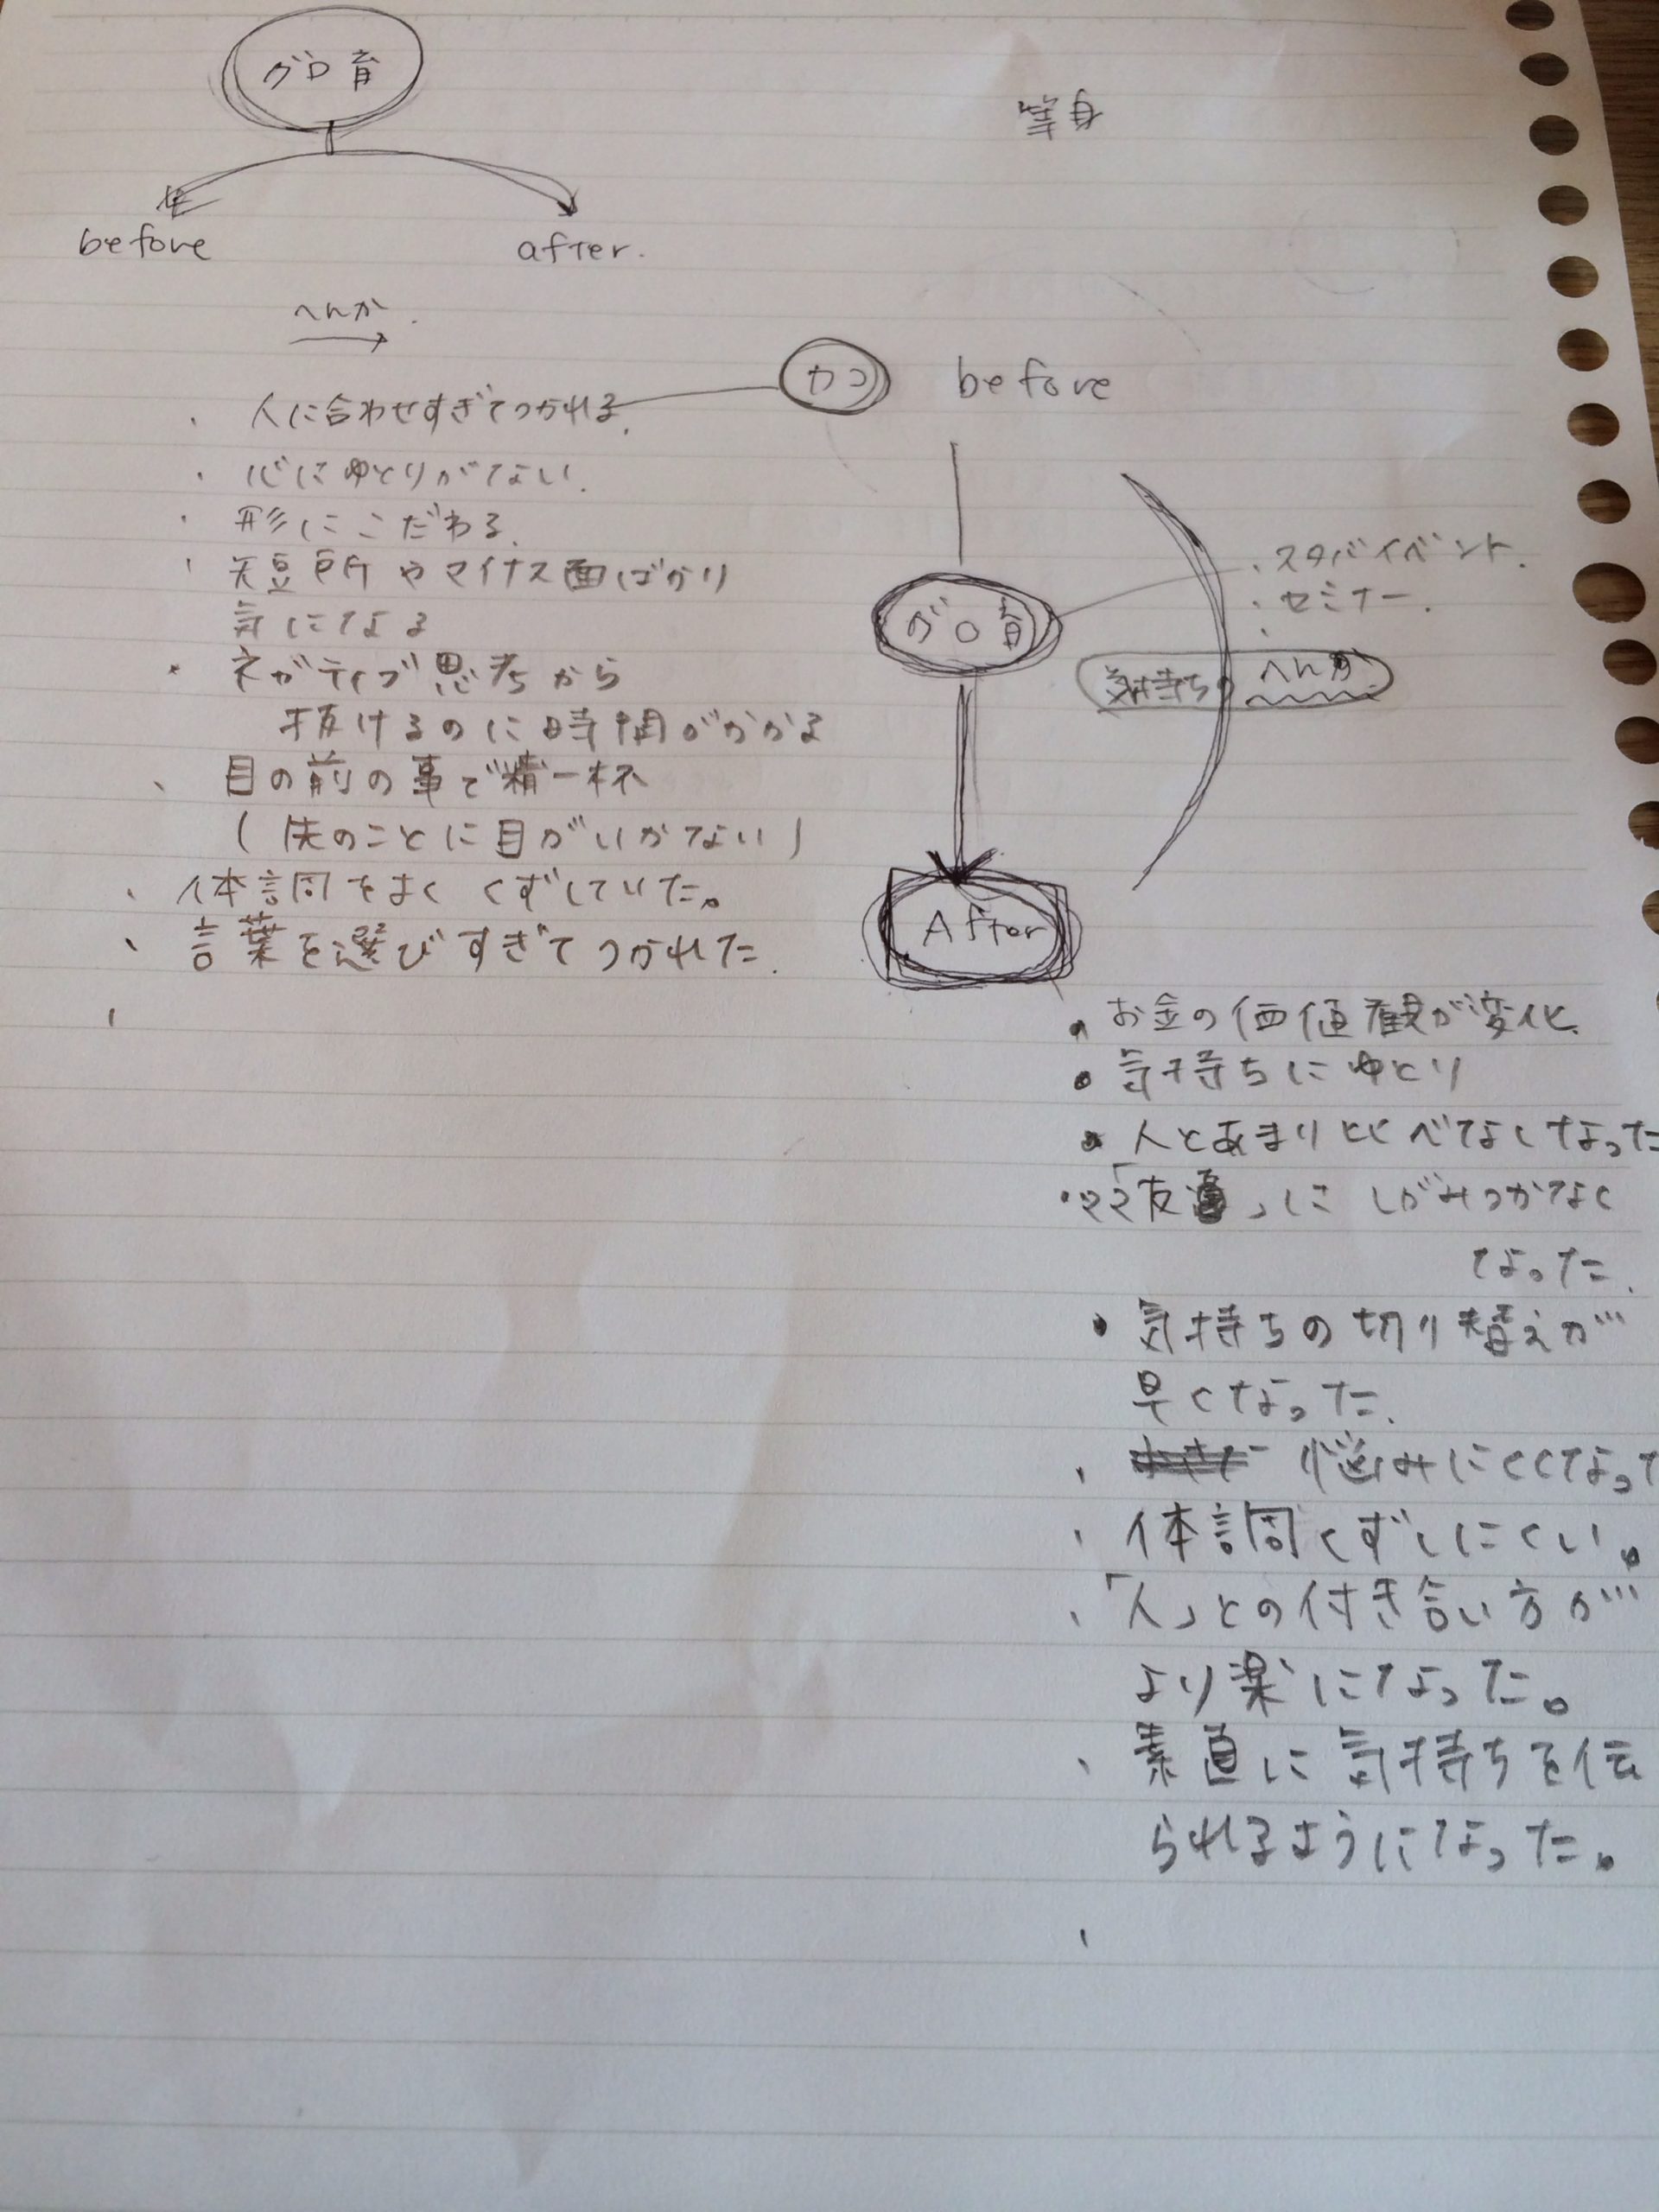 グロ育
等身
before
after.
へんか
カコ
before
・人に合わせすぎてつかれる.
・心にゆとりがない.
・形にこだわる.
・短所やマイナス面ばかり
気になる
・ネガティブ思考から
抜けるのに時間がかかる
・目の前の事で精一杯
(先のことに目がいかない)
・体調をよくくずしていた。
・言葉を選びすぎてつかれた.
グロ育
・スタバイベント.
・セミナー.
気持ちのへんか
After
・お金の価値観が変化.
・気持ちにゆとり
・人とあまり比べなくなった
・ママ「友」にしがみつかなく
なった.
・気持ちの切り替えが
早くなった.
・悩みにくくなって
・体調くずしにくい。
・「人」との付き合い方が
より楽になった。
・素直に気持ちを伝
られるようになった。